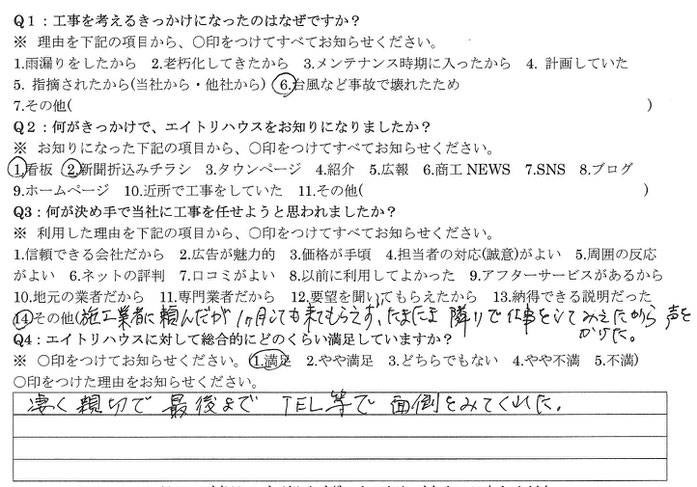 Q1：工事を考えるきっかけになったのはなぜですか？
※ 理由を下記の項目から、○印をつけてすべてお知らせください。
1.雨漏りをしたから 2.老朽化してきたから 3.メンテナンス時期に入ったから 4. 計画していた
5. 指摘されたから(当社から・他社から) 6.台風など事故で壊れたため
7.その他( )
Q2：何がきっかけで、エイトリハウスをお知りになりましたか？
※ お知りになった下記の項目から、○印をつけてすべてお知らせください。
1.看板 2.新聞折込みチラシ 3.タウンページ 4.紹介 5.広報 6.商工NEWS 7.SNS 8.ブログ
9.ホームページ 10.近所で工事をしていた 11.その他( )
Q3：何が決め手で当社に工事を任せようと思われましたか？
※ 利用した理由を下記の項目から、○印をつけてすべてお知らせください。
1.信頼できる会社だから 2.広告が魅力的 3.価格が手頃 4.担当者の対応(誠意)がよい 5.周囲の反応
がよい 6.ネットの評判 7.口コミがよい 8.以前に利用してよかった 9.アフターサービスがあるから
10.地元の業者だから 11.専門業者だから 12.要望を聞いてもらえたから 13.納得できる説明だった
14その他(施工業者に頼んだが1ヶ月しても来てもらえず、たまたま 隣りで仕事をしてみえたから 声を
かけた。
Q4：エイトリハウスに対して総合的にどのくらい満足していますか？
※ ○印をつけてお知らせください。 1.満足 2.やや満足 3.どちらでもない 4.やや不満 5.不満)
○印をつけた理由をお知らせください。
凄く親切で 最後まで TEL等で 面倒をみてくれた。